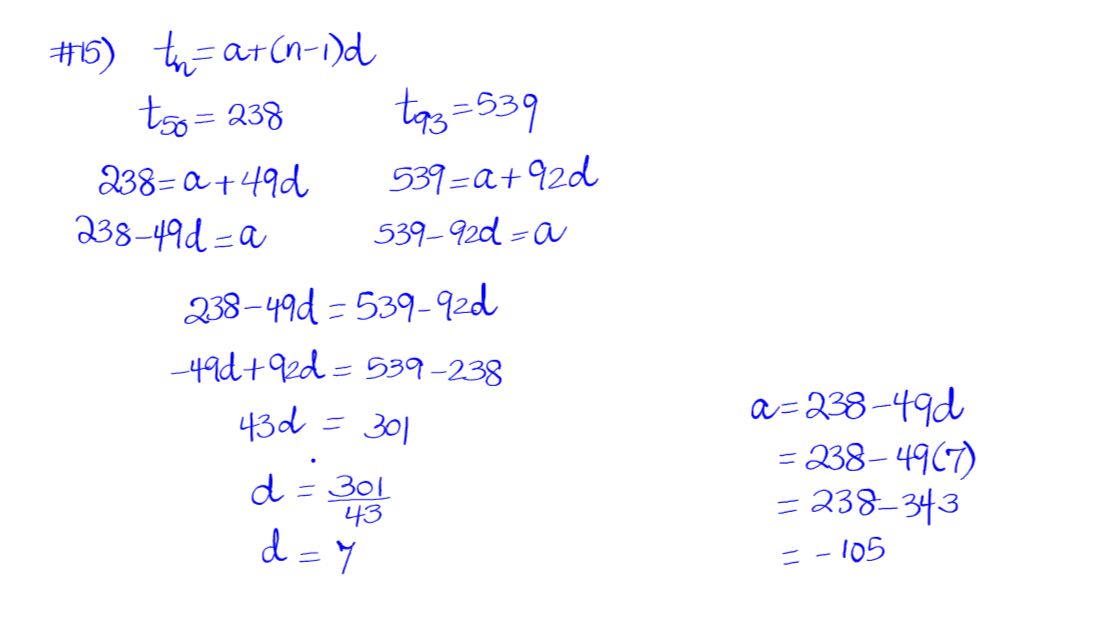 #15) tₙ = a+(n-1)d
t₅₀ = 238 t₉₃ = 539
238 = a + 49d 539 = a + 92d
238-49d = a 539-92d = a
238-49d = 539-92d
-49d+92d = 539-238
43d = 301
d = 301/43
d = 7
a = 238-49d
= 238-49(7)
= 238-343
= -105